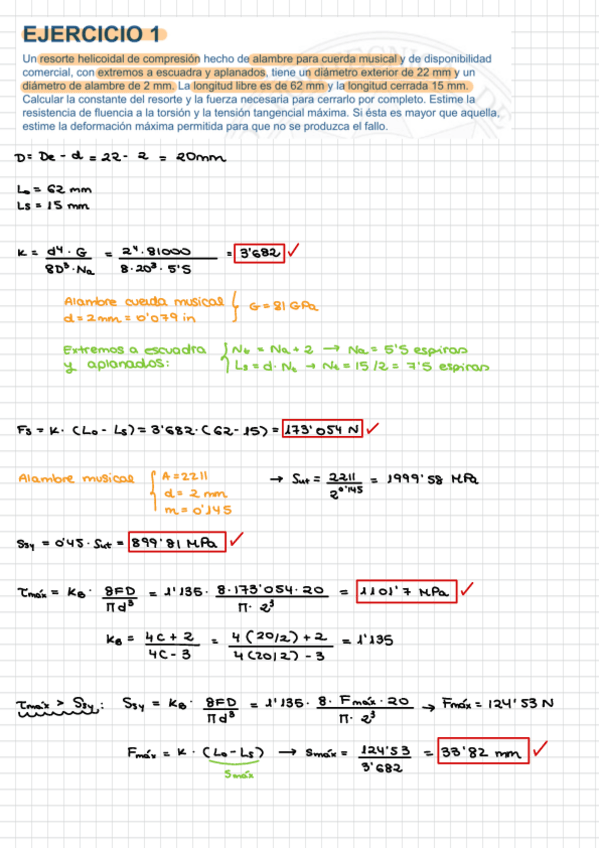 EJERCICIO 1
Un resorte helicoidal de compresión hecho de alambre para cuerda musical y de disponibilidad
comercial, con extremos a escuadra y aplanados, tiene un diámetro exterior de 22 mm y un
diámetro de alambre de 2 mm. La longitud libre es de 62 mm y la longitud cerrada 15 mm.
Calcular la constante del resorte y la fuerza necesaria para cerrarlo por completo. Estime la
resistencia de fluencia a la torsión y la tensión tangencial máxima. Si ésta es mayor que aquella,
estime la deformación máxima permitida para que no se produzca el fallo.
D = De - d = 22 - 2 = 20mm
Lo = 62 mm
Ls = 15 mm
K = d⁴ · G / 8D³ · Na = 2⁴ · 81000 / 8 · 20³ · 5'5 = 3'682 ✓
Alambre cuerda musical { G = 81 GPa
d = 2mm = 0'079 in
Extremos a escuadra { Nt = Na + 2 → Na = 5'5 espiras
y aplanados: Ls = d · Nt → Nt = 15/2 = 7'5 espiras
Fs = K · (Lo - Ls) = 3'682 · (62 - 15) = 173'054 N ✓
Alambre musical { A = 2211
d = 2 mm
m = 0'145
→ Sut = 2211 / 2^0'145 = 1999'58 MPa
Ssy = 0'45 · Sut = 899'81 MPa ✓
τmáx = KB · 8FD / πd³ = 1'135 · 8 · 173'054 · 20 / π · 2³ = 1101'7 MPa ✓
KB = 4C + 2 / 4C - 3 = 4(20/2) + 2 / 4(20/2) - 3 = 1'135
τmáx > Ssy: Ssy = KB · 8FD / πd³ = 1'135 · 8 · Fmáx · 20 / π · 2³ → Fmáx = 124'53 N
Fmáx = K · (Lo - Ls) → Smáx = 124'53 / 3'682 = 33'82 mm ✓
Smáx